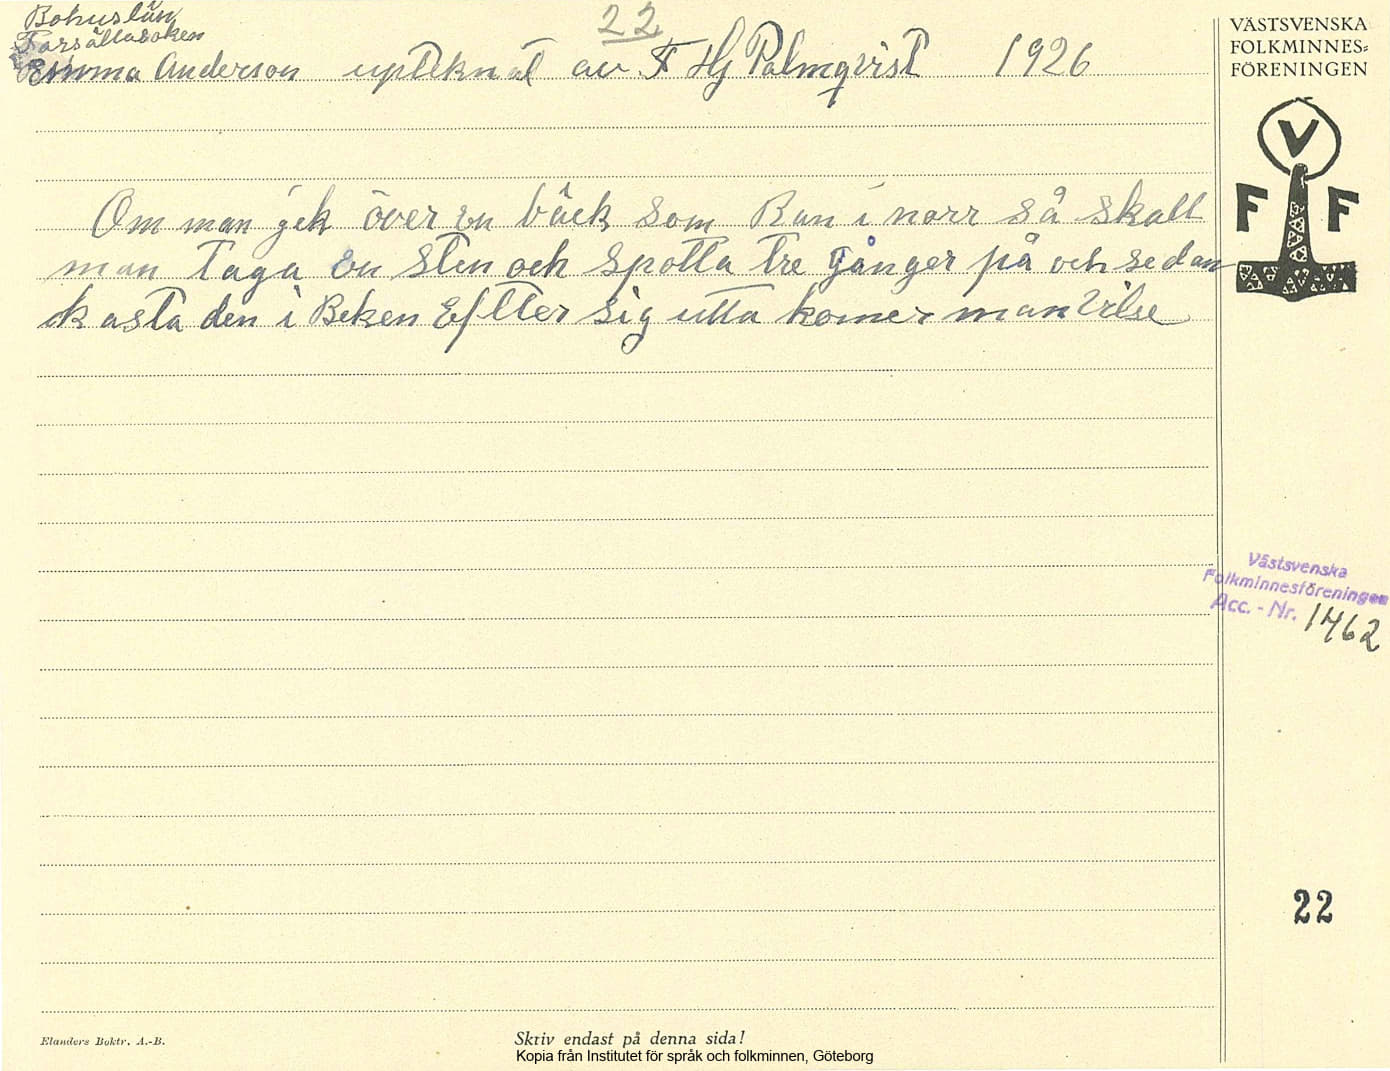 Bohuslän
Forsällasoken
22
Emma Anderson upteknat av F Hj Palmqvist 1926
VÄSTSVENSKA
FOLKMINNES-
FÖRENINGEN
V
F F
Om man gek över en bäck som Ran i norr så skall
man taga en sten och spotta tre gånger på och sedan
kasta den i Beken Eftter sig utta komer man vilse
Västsvenska
Folkminnesföreningen
Acc. - Nr. 1462
22
Elanders Boktr. A.-B.
Skriv endast på denna sida!
Kopia från Institutet för språk och folkminnen, Göteborg